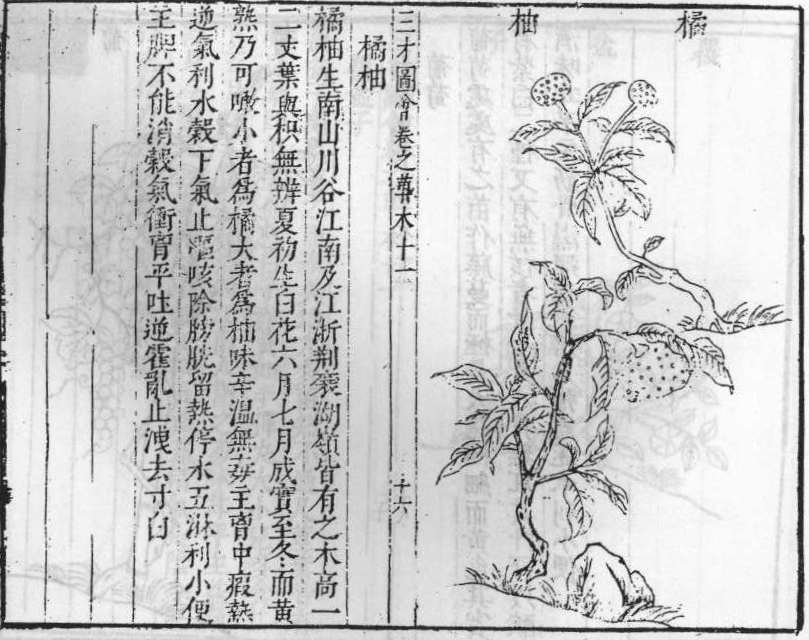 橘
柚
三才圖會卷之草木十一
十六
橘柚
橘柚生南山川谷江南及江浙荆襄湖嶺皆有之木高一
二丈葉與枳無辨夏初生白花六月七月成實至冬而黃
熟乃可噉小者爲橘大者爲柚味辛溫無毒主胷中瘕熱
逆氣利水穀下氣止嘔咳除膀胱留熱停水五淋利小便
主脾不能消穀氣衝胷平吐逆霍亂止洩去寸白